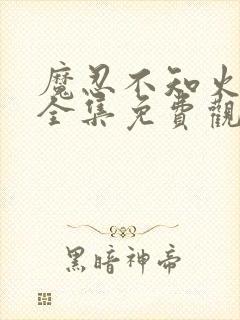 魔忍不知火
全集免費觀
黑暗神帝